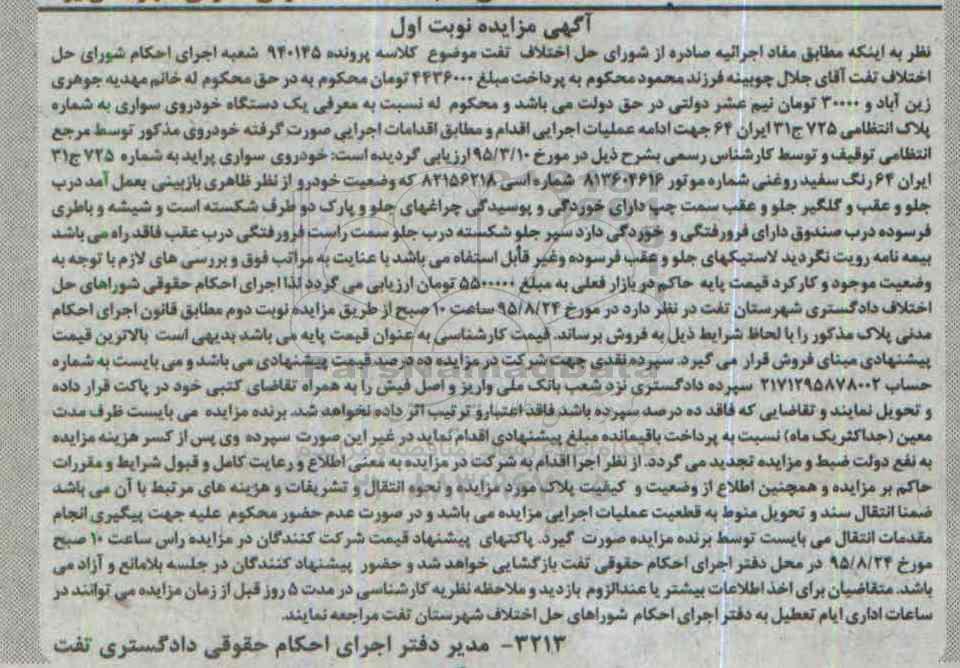 آگهی مزایده نوبت اول
نظر به اینکه مطابق مفاد اجرائیه صادره از شورای حل اختلاف تفت موضوع کلاسه پرونده ۹۴۰۱۴۵ شعبه اجرای احکام شورای حل
اختلاف تفت آقای جلال چوبینه فرزند محمود محکوم به پرداخت مبلغ ۴۴۳۶۰۰۰ تومان محکوم به در حق محکوم له خانم مهدیه جوهری
زین آباد و ۳۰۰۰۰ تومان نیم عشر دولتی در حق دولت می باشد و محکوم له نسبت به معرفی یک دستگاه خودروی سواری به شماره
پلاک انتظامی ۷۲۵ ج۳۱ ایران ۶۴ جهت ادامه عملیات اجرایی اقدام و مطابق اقدامات اجرایی صورت گرفته خودروی مذکور توسط مرجع
انتظامی توقیف و توسط کارشناس رسمی بشرح ذیل در مورخ ۹۵/۳/۱۰ ارزیابی گردیده است: خودروی سواری پراید به شماره ۷۲۵ ج۳۱
ایران ۶۴ رنگ سفید روغنی شماره موتور ۸۱۳۶۰۴۶۱۶ شماره اسی ۸۲۱۵۶۲۱۸ که وضعیت خودرو از نظر ظاهری بازبینی بعمل آمد درب
جلو و عقب و گلگیر جلو و عقب سمت چپ دارای خوردگی و پوسیدگی چراغهای جلو و پارک دو طرف شکسته است و شیشه و باطری
فرسوده درب صندوق دارای فرورفتگی و خوردگی دارد سپر جلو شکسته درب جلو سمت راست فرورفتگی درب عقب فاقد راه می باشد
بیمه نامه رویت نگردید لاستیکهای جلو و عقب فرسوده وغیر قابل استفاه می باشد با عنایت به مراتب فوق و بررسی های لازم با توجه به
وضعیت موجود و کارکرد قیمت پایه حاکم در بازار فعلی به مبلغ ۵۵۰۰۰۰۰ تومان ارزیابی می گردد لذا اجرای احکام حقوقی شوراهای حل
اختلاف دادگستری شهرستان تفت در نظر دارد در مورخ ۹۵/۸/۲۴ ساعت ۱۰ صبح از طریق مزایده نوبت دوم مطابق قانون اجرای احکام
مدنی پلاک مذکور را با لحاظ شرایط ذیل به فروش برساند. قیمت کارشناسی به عنوان قیمت پایه می باشد بدیهی است بالاترین قیمت
پیشنهادی مبنای فروش قرار می گیرد. سپرده نقدی جهت شرکت در مزایده ده درصد قیمت پیشنهادی می باشد و می بایست به شماره
حساب ۲۱۷۱۲۹۵۸۷۸۰۰۲ سپرده دادگستری نزد شعب بانک ملی واریز و اصل فیش را به همراه تقاضای کتبی خود در پاکت قرار داده
و تحویل نمایند و تقاضایی که فاقد ده درصد سپرده باشد فاقد اعتبار و ترتیب اثر داده نخواهد شد. برنده مزایده می بایست ظرف مدت
معین (حداکثر یک ماه) نسبت به پرداخت باقیمانده مبلغ پیشنهادی اقدام نماید در غیر این صورت سپرده وی پس از کسر هزینه مزایده
به نفع دولت ضبط و مزایده تجدید می گردد. از نظر اجرا اقدام به شرکت در مزایده به معنی اطلاع و رعایت کامل و قبول شرایط و مقررات
حاکم بر مزایده و همچنین اطلاع از وضعیت و کیفیت پلاک مورد مزایده و نحوه انتقال و تشریفات و هزینه های مرتبط با آن می باشد
ضمنا انتقال سند و تحویل منوط به قطعیت عملیات اجرایی مزایده می باشد و در صورت عدم حضور محکوم علیه جهت پیگیری انجام
مقدمات انتقال می بایست توسط برنده مزایده صورت گیرد. پاکتهای پیشنهاد قیمت شرکت کنندگان در مزایده راس ساعت ۱۰ صبح
مورخ ۹۵/۸/۲۴ در محل دفتر اجرای احکام حقوقی تفت بازگشایی خواهد شد و حضور پیشنهاد کنندگان در جلسه بلامانع و آزاد می
باشد. متقاضیان برای اخذ اطلاعات بیشتر یا عندالزوم بازدید و ملاحظه نظریه کارشناسی در مدت ۵ روز قبل از زمان مزایده می توانند در
ساعات اداری ایام تعطیل به دفتر اجرای احکام شوراهای حل اختلاف شهرستان تفت مراجعه نمایند.
۳۲۱۳- مدیر دفتر اجرای احکام حقوقی دادگستری تفت
ParsNamadData